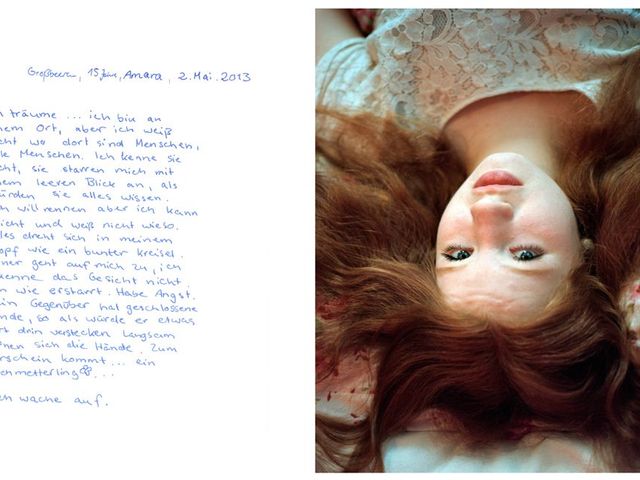 Großbeeren, 15 Jahre, Amara, 2. Mai. 2013
h träume ... ich bin an
nem Ort, aber ich weiß
cht wo dort sind Menschen,
le Menschen. Ich kenne sie
cht, sie starren mich mit
nem leeren Blick an, als
ürden sie alles wissen.
h will rennen aber ich kann
icht und weiß nicht wieso.
les dreht sich in meinem
opf wie ein bunter kreisel.
ner geht auf mich zu, ich
kenne das Gesicht nicht.
n wie erstarrt. Habe Angst.
in Gegenüber hat geschlossene
nde, so als würde er etwas
rt drin verstecken. Langsam
nen sich die Hände. Zum
rschein kommt ... ein
chmetterling ...
ch wache auf.